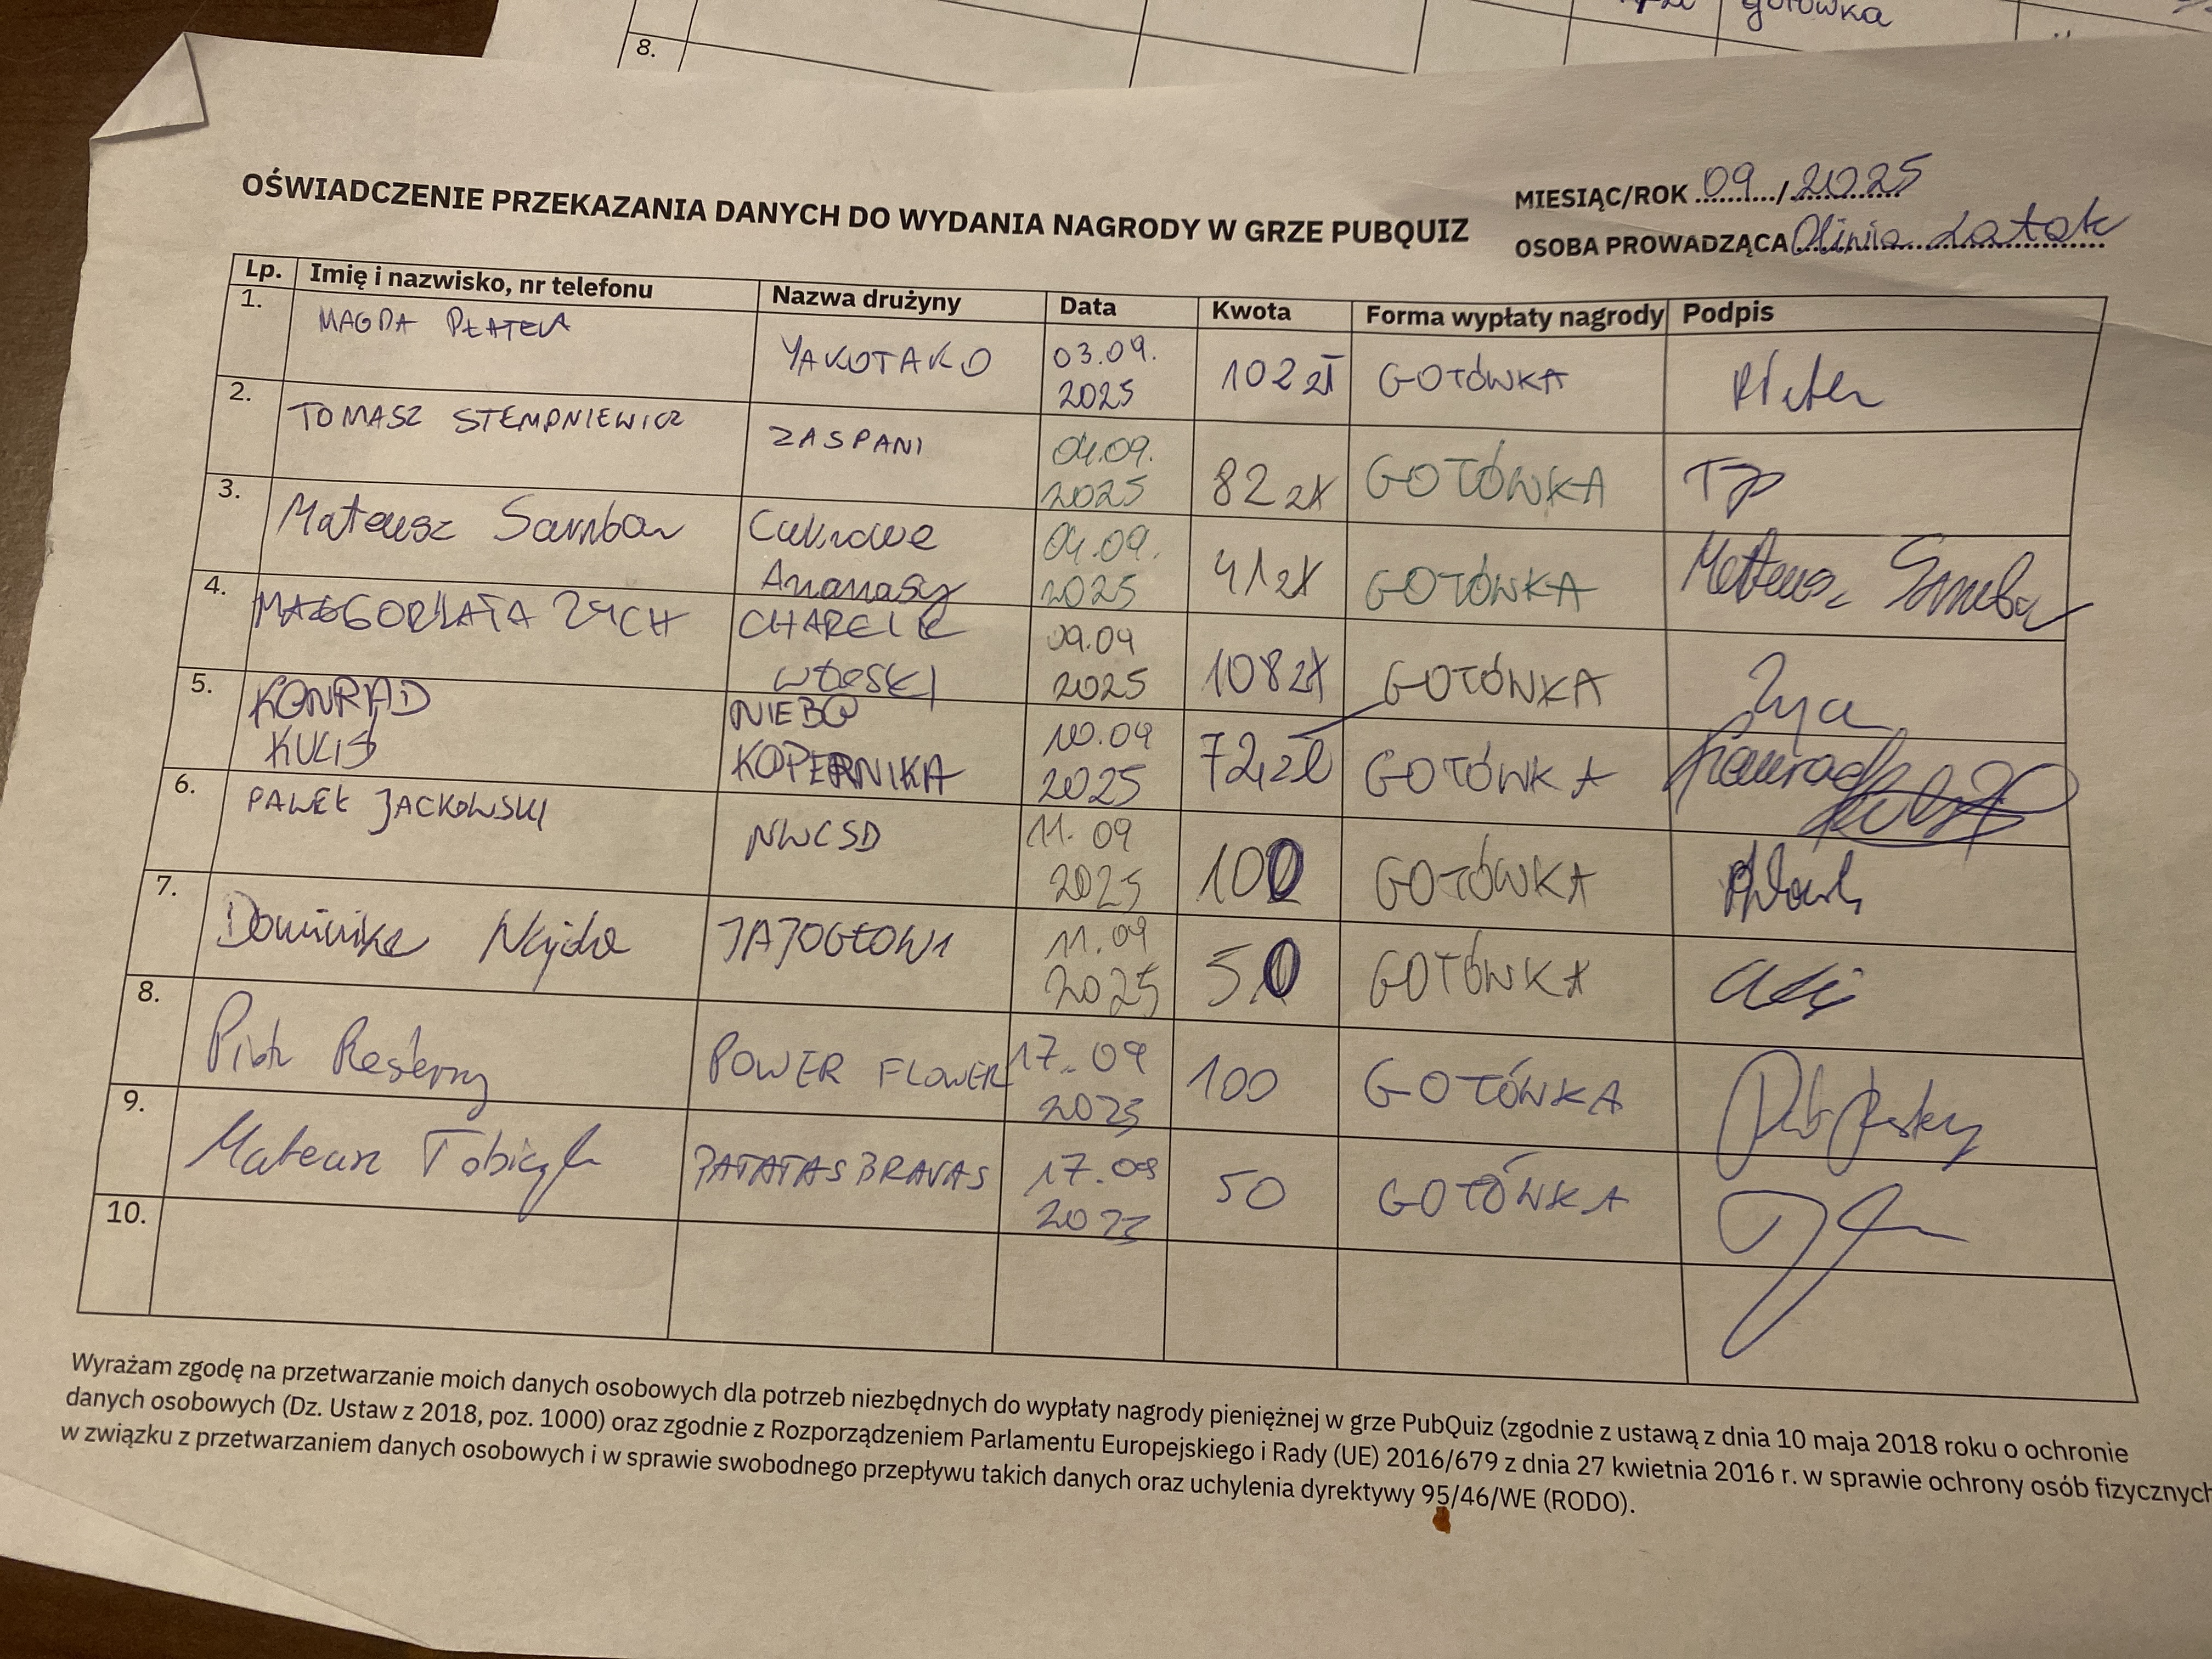 gotówka
8.
OŚWIADCZENIE PRZEKAZANIA DANYCH DO WYDANIA NAGRODY W GRZE PUBQUIZ
MIESIĄC/ROK 09/2025
OSOBA PROWADZĄCA Oliwia Latok
Lp. Imię i nazwisko, nr telefonu Nazwa drużyny Data Kwota Forma wypłaty nagrody Podpis
1. MAGDA PŁATEK YAKOTAKO 03.09. 2025 102 zł GOTÓWKA
2. TOMASZ STEMPNIEWICZ ZASPANI 04.09. 2025 82 zł GOTÓWKA
3. Mateusz Cukrowe Ananasy 04.09. 2025 41 zł GOTÓWKA Mateusz
4. MAŁGORZATA ZYCH CHARCIK włoski 09.09 2025 108 zł GOTÓWKA
5. KONRAD KULIŚ NIEBO KOPERNIKA 10.09 2025 72 zł GOTÓWKA Konrad
6. PAWEŁ JACKOWSKI NWCSD 11.09 2025 100 GOTÓWKA
7. Dominika JAJOGŁOWI 11.09 2025 50 GOTÓWKA
8. Piotr POWER FLOWER 17.09 2025 100 GOTÓWKA
9. Mateusz PATATAS BRAVAS 17.09 2025 50 GOTÓWKA
10.
Wyrażam zgodę na przetwarzanie moich danych osobowych dla potrzeb niezbędnych do wypłaty nagrody pieniężnej w grze PubQuiz (zgodnie z ustawą z dnia 10 maja 2018 roku o ochronie
danych osobowych (Dz. Ustaw z 2018, poz. 1000) oraz zgodnie z Rozporządzeniem Parlamentu Europejskiego i Rady (UE) 2016/679 z dnia 27 kwietnia 2016 r. w sprawie ochrony osób fizycznych
w związku z przetwarzaniem danych osobowych i w sprawie swobodnego przepływu takich danych oraz uchylenia dyrektywy 95/46/WE (RODO).